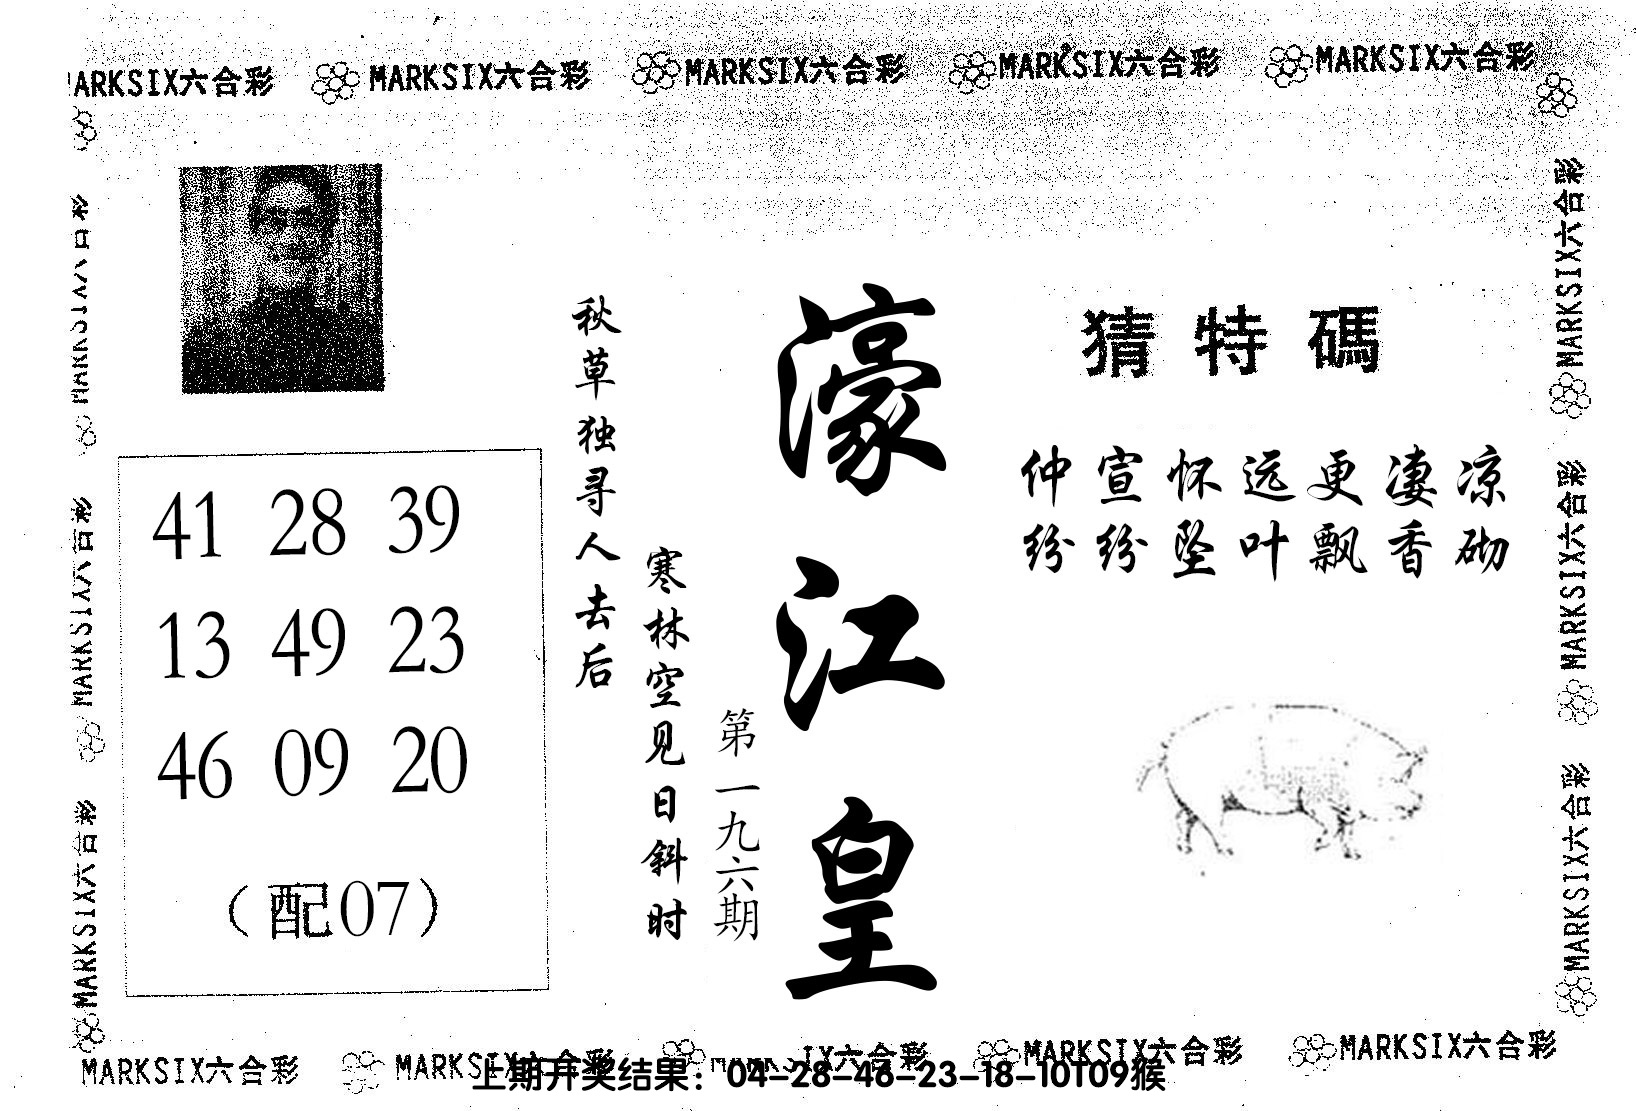 MARKSIX六合彩 MARKSIX六合彩 MARKSIX六合彩 MARKSIX六合彩 MARKSIX六合彩
猜特碼
仲宣怀远更凄凉
纷纷坠叶飘香砌
濠江皇
第一九六期
秋草独寻人去后
寒林空见日斜时
41 28 39
13 49 23
46 09 20
（配07）
MARKSIX六合彩
MARKSIX六合彩
MARKSIX六合彩
MARKSIX六合彩
MARKSIX六合彩
MARKSIX六合彩
MARKSIX六合彩 MARKSIX六合彩 MARKSIX六合彩 MARKSIX六合彩 MARKSIX六合彩
上期开奖结果：04-28-46-23-18-10T09猴